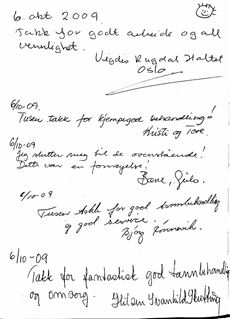 6. okt 2009.
Takk for godt arbeide og all
vennlighet.
Vigdis Rugdal
Oslo
6/10-09.
Tusen takk for kjempegod behandling!
Kristi og Tore.
6/10-09
Jeg slutter meg til de ovenstående!
Dette var en fornøyelse!
6/10-09
Tusen takk for god tannbehandling
og god service.
Bjørg
6/10-09
Takk for fantastisk god tannbehandling
og omsorg. Hilsen Svanhild